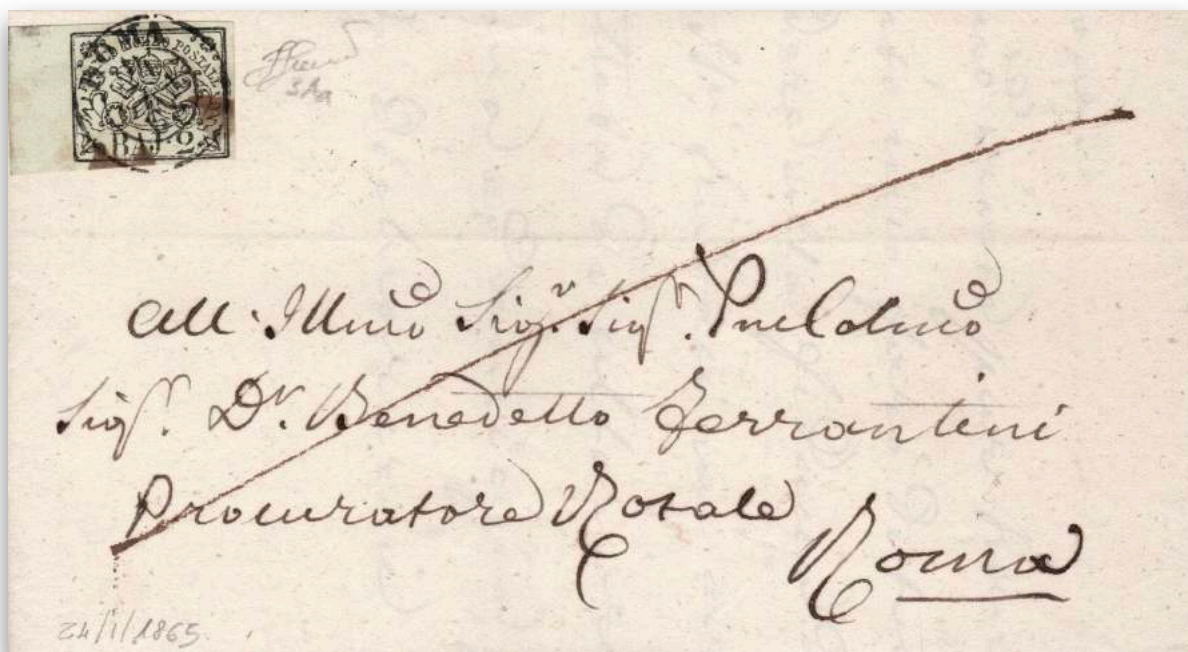 ROMA
BOLLO POSTALE
BAJ. 2
All'Illmo Sigr. Sigr. Pne Colmo
Sigr. Dr. Benedetto Ferrantini
Procuratore Rotale
Roma
24/1/1865